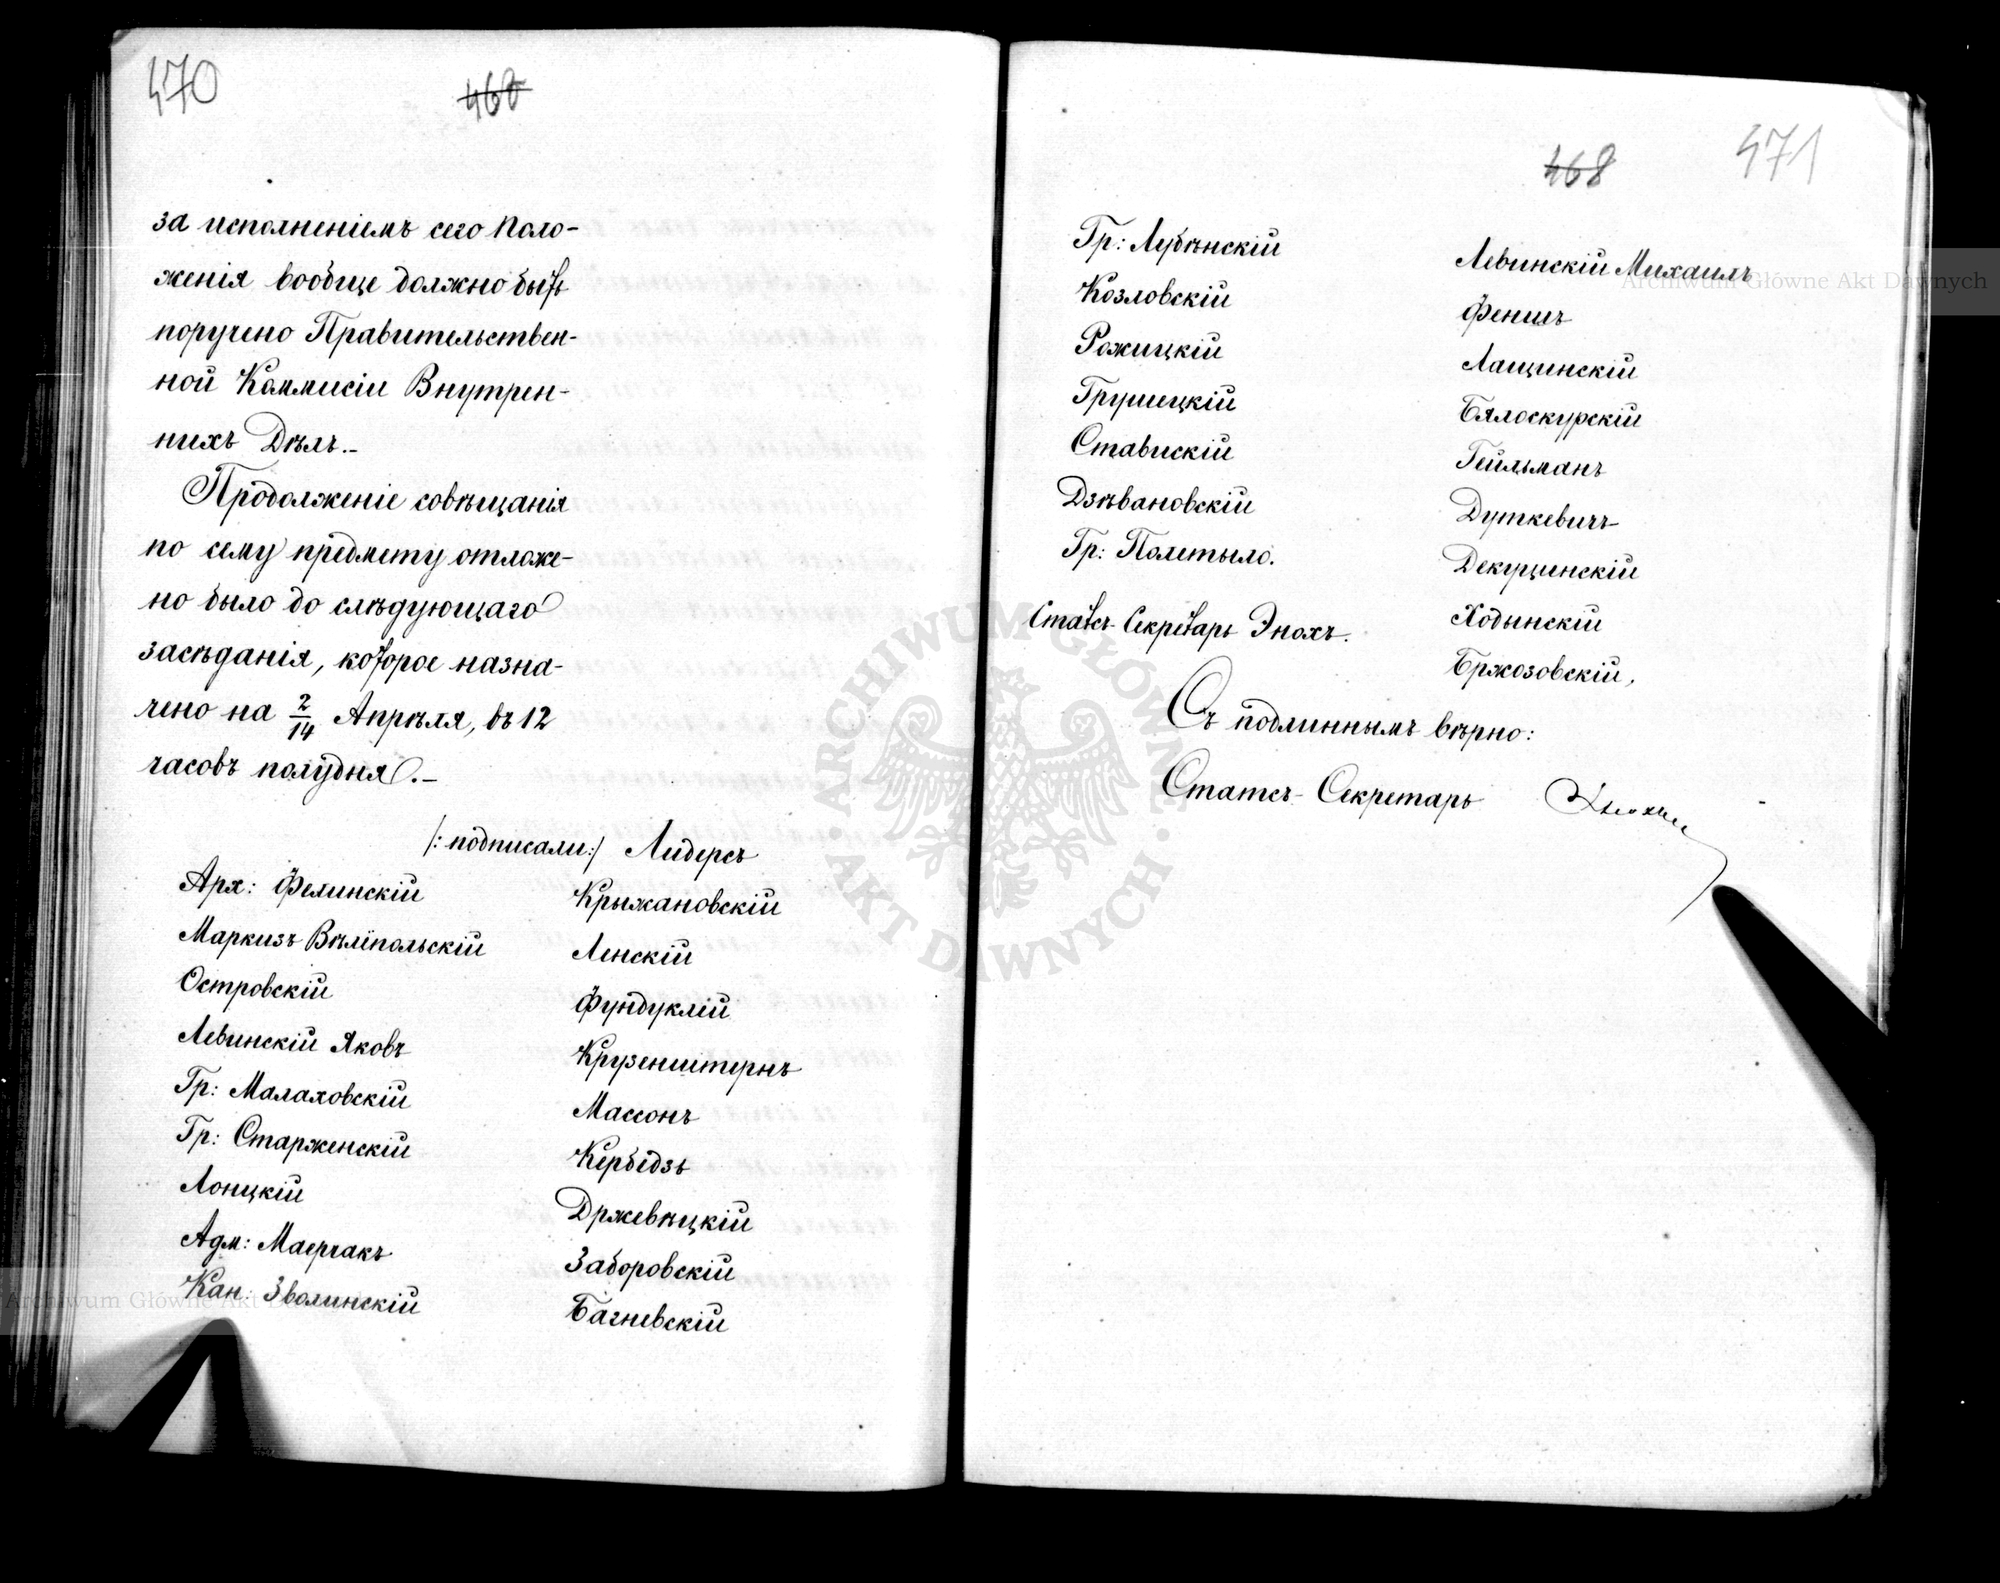 470
460
за исполненіемъ сего Поло-
женія вообще должно быть
поручено Правительствен-
ной Коммисіи Внутрен-
нихъ Дѣлъ.-
Продолженіе совѣщанія
по сему предмету отложе-
но было до слѣдующаго
засѣданія, которое назна-
чено на 2/14 Апрѣля, въ 12
часовъ полудня.-
/:подписали:/ Лидерсъ
Арх: Фелинскій
Маркизъ Вѣлёпольскій
Островскій
Левинскій Яковъ
Гр: Малаховскій
Гр: Старженскій
Лонцкій
Адм: Маерчакъ
Кан: Зволинскій
Крыжановскій
Ленскій
Фундуклій
Крузенштернъ
Массонъ
Кербедзъ
Држевѣцкій
Заборовскій
Багневскій
471
468
Гр: Лубѣнскій
Козловскій
Рожицкій
Грушецкій
Ставискій
Дзѣвановскій
Гр: Полетыло.
Статсъ-Секретарь Энохъ.
Левинскій Михаилъ
Феншъ
Лащинскій
Бялоскурскій
Гейльманъ
Дуткевичъ
Декуцинскій
Ходынскій
Бржозовскій,
Съ подлиннымъ вѣрно:
Статсъ-Секретарь
Archiwum Główne Akt Dawnych
Archiwum Główne Akt D
ARCHIWUM GŁÓWNE AKT DAWNYCH